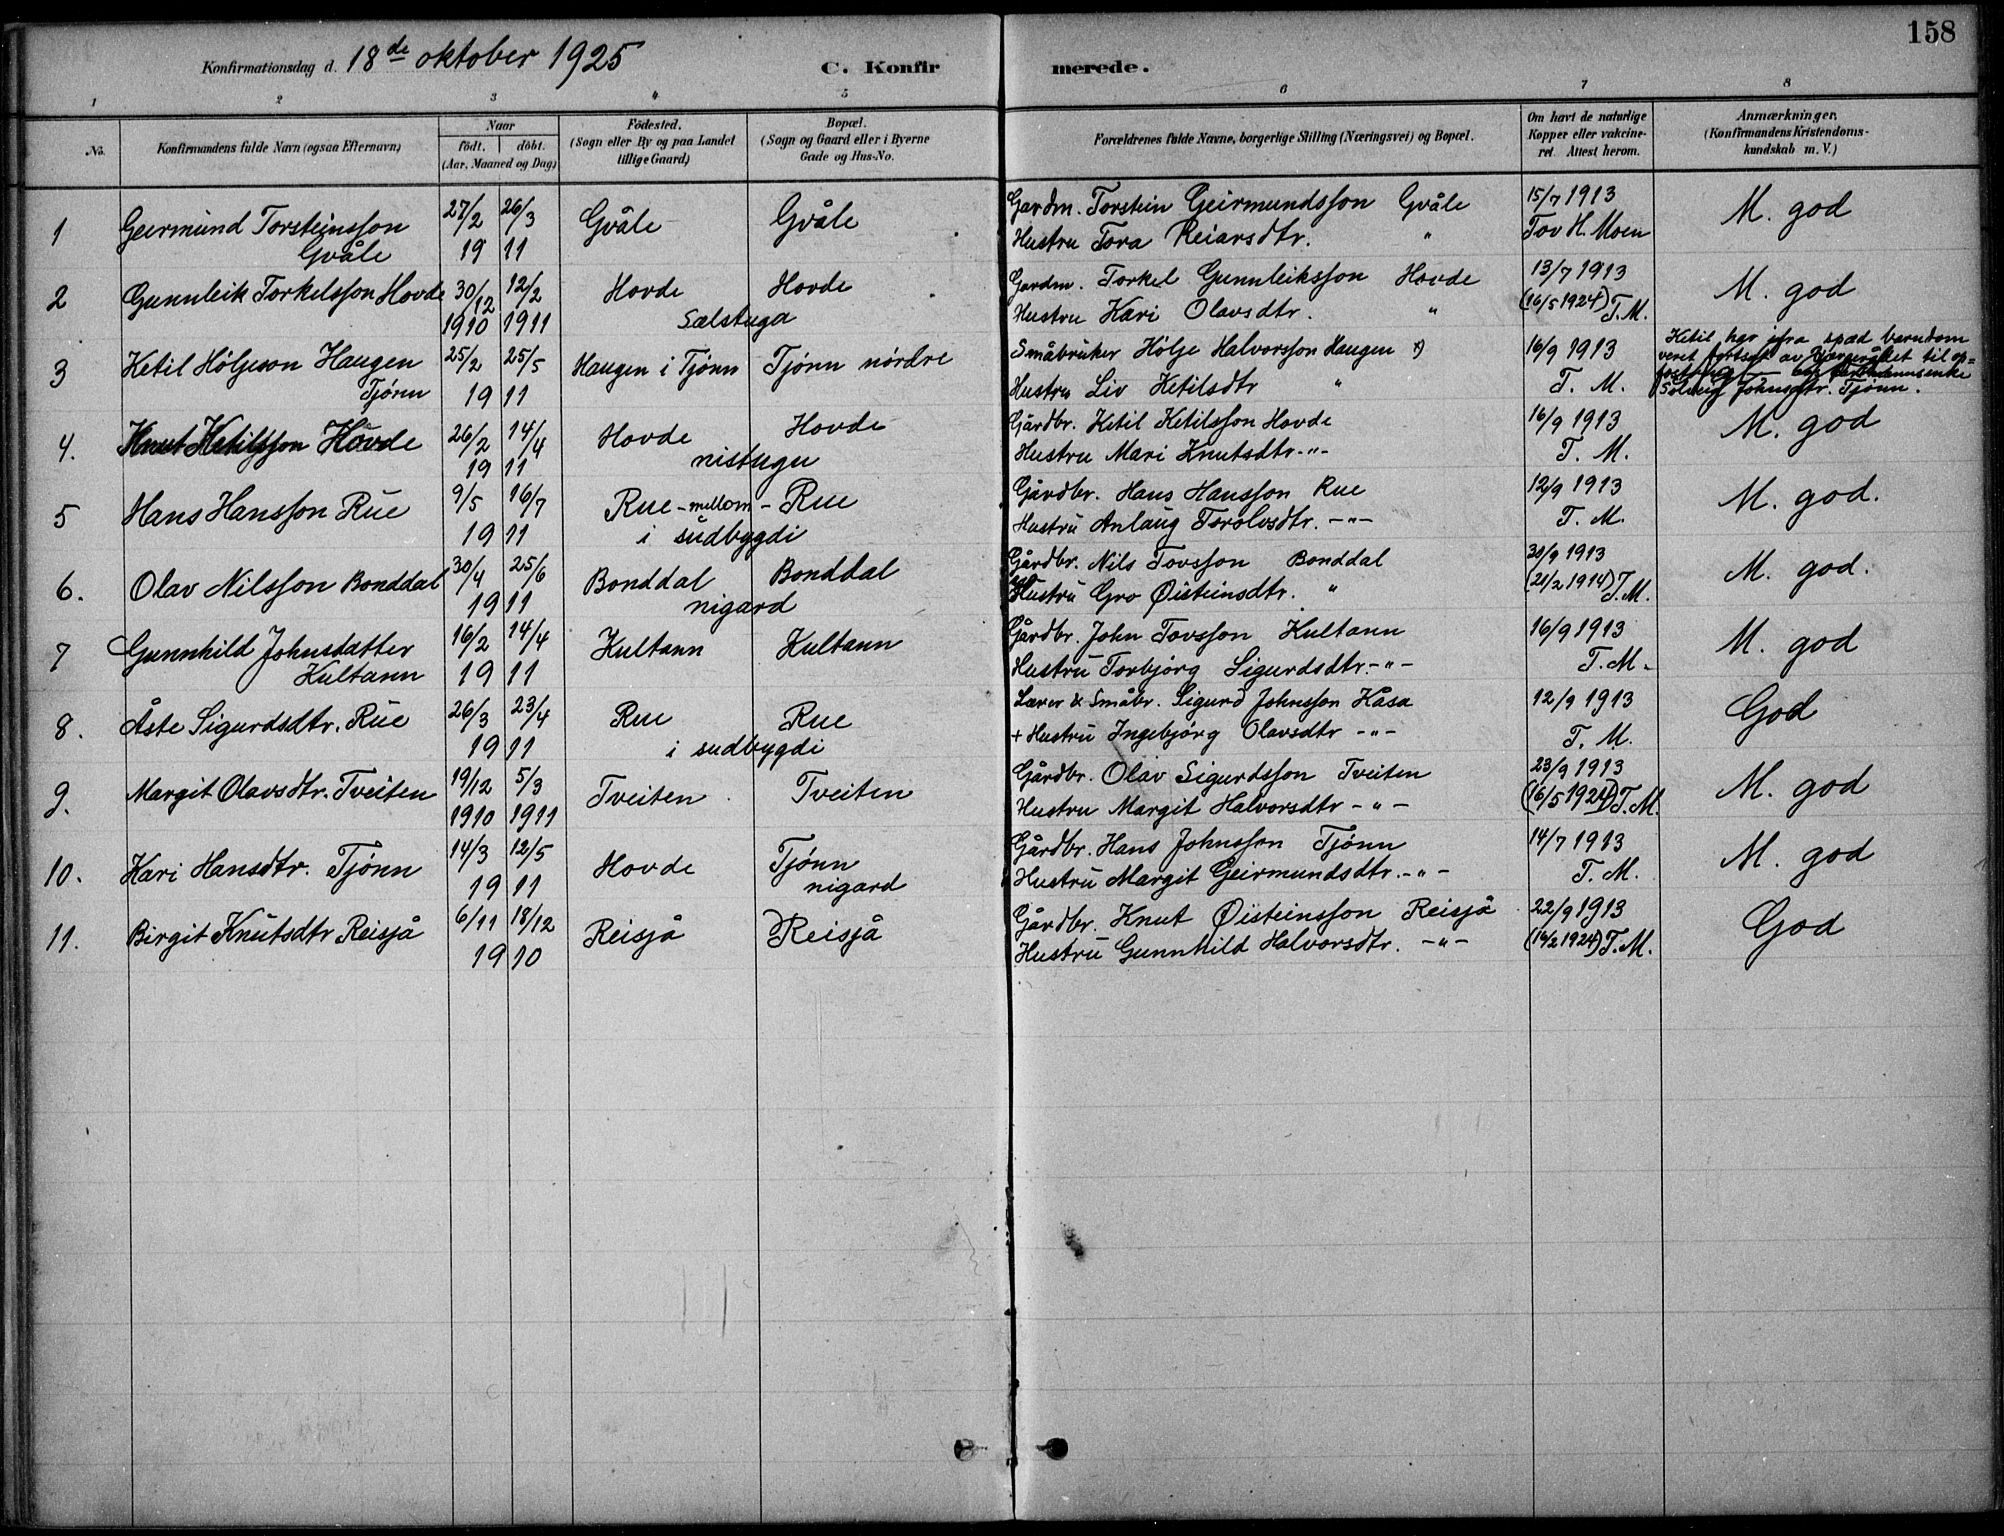 158
Konfirmationsdag d. 18de oktober 1925 C. Konfirmerede.
1 2 3 4 5 6 7 8
No. Konfirmandens fulde Navn (ogsaa Efternavn) Naar født. døbt. (Aar, Maaned og Dag) Fødested. (Sogn eller By og paa Landet tillige Gaard) Bopæl. (Sogn og Gaard eller i Byerne Gade og Hus-No. Forældrenes fulde Navne, borgerlige Stilling (Næringsvei) og Bopæl. Om havt de naturlige Kopper eller vakcineret. Attest herom. Anmærkninger. (Konfirmandens Kristendomskundskab m. V.)
1 Geirmund Torsteinsson 27/2 26/3 Gvåle Gvåle Gardm. Torstein Geirmundsson Gvåle 15/7 1913 M. god
Gvåle 19 11 Hustru Tora Reiarsdtr. " Tov H. Moen
2 Gunnleik Torkelsson Hovde 30/12 12/2 Hovde Hovde Gardm. Torkel Gunnleiksson Hovde 13/7 1913 M. god
1910 1911 Sælstuga Hustru Kari Olavsdtr. " (16/5 1924) T.M.
3 Ketil Høljeson Haugen 25/2 25/5 Haugen i Tjønn Tjønn nørdre Småbruker Hølje Halvorsson Haugen 16/9 1913 Ketil har ifra spæd barndom
Tjønn 19 11 Hustru Liv Ketilsdtr " T. M. veret bortsat av til op-
Johnsdtr. Tjønn.
4. Knut Ketilsson Hovde 26/2 14/4 Hovde Hovde Gårdbr. Ketil Ketilsson Hovde 16/9 1913 M. god
19 11 nistugu Hustru Mari Knutsdtr -"- T. M.
5 Hans Hansson Rue 9/5 16/7 Rue - mellom - Rue Gårdbr. Hans Hansson Rue 12/9 1913 M. god.
19 11 i sudbygdi Hustru Anlaug Torolvsdtr. -"- T. M.
6. Olav Nilsson Bonddal 30/4 25/6 Bonddal Bonddal Gårdbr. Nils Tovsson Bonddal 30/9 1913 M. god.
19 11 nigard Hustru Gro Øisteinsdtr. " (21/2 1914) T.M.
7 Gunnhild Johnsdatter 16/2 14/4 Kultann Kultann Gårdbr. John Tovsson Kultann 16/9 1913 M. god
Kultann 19 11 Hustru Torbjørg Sigurdsdtr. -"- T. M.
8. Åste Sigurdsdtr. Rue 26/3 23/4 Rue Rue Lærer & Småbr. Sigurd Johnsson Kåsa 12/9 1913 God
19 11 i sudbygdi + Hustru Ingebjørg Olavsdtr -"- T. M.
9. Margit Olavsdtr. Tveiten 19/12 5/3 Tveiten Tveiten Gårdbr. Olav Sigurdsson Tveiten 23/9 1913 M. god
1910 1911 Hustru Margit Halvorsdtr -"- (16/5 1924) T. M.
10. Kari Hansdtr. Tjønn 14/3 12/5 Hovde Tjønn Gårdbr. Hans Johnsson Tjønn 14/7 1913 M. god
19 11 nigard Hustru Margit Geirmundsdtr. -"- T. M.
11. Birgit Knutsdtr Reisjå 6/11 18/12 Reisjå Reisjå Gårdbr. Knut Øisteinsson Reisjå 22/9 1913 God
19 10 Hustru Gunnhild Halvorsdtr. -"- (16/2 1924) T. M.